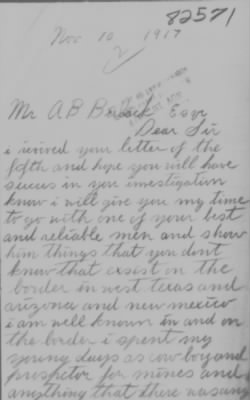 82571
Nov 10 1917
2
Mr A B Esqr
Dear Sir
i recived your letter of the
fifth and hope you will have
succes in you investigation
know i will give you my time
to go with one of your best
and reliable men and show
him things that you dont
know that exsist on the
border in west texas and
arizona and new mexico
i am well known in and on
the border i spent my
young days as cow boy and
prospector for mines and
anything that there was any